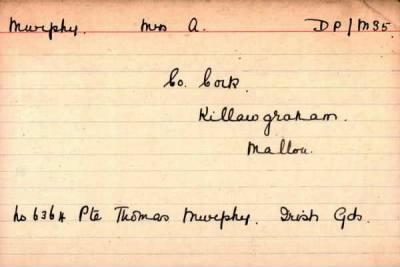 Murphy. Mrs A. DP/M35.
Co. Cork.
Killawgraham.
Mallow.
No 6364 Pte Thomas Murphy. Irish Gds.